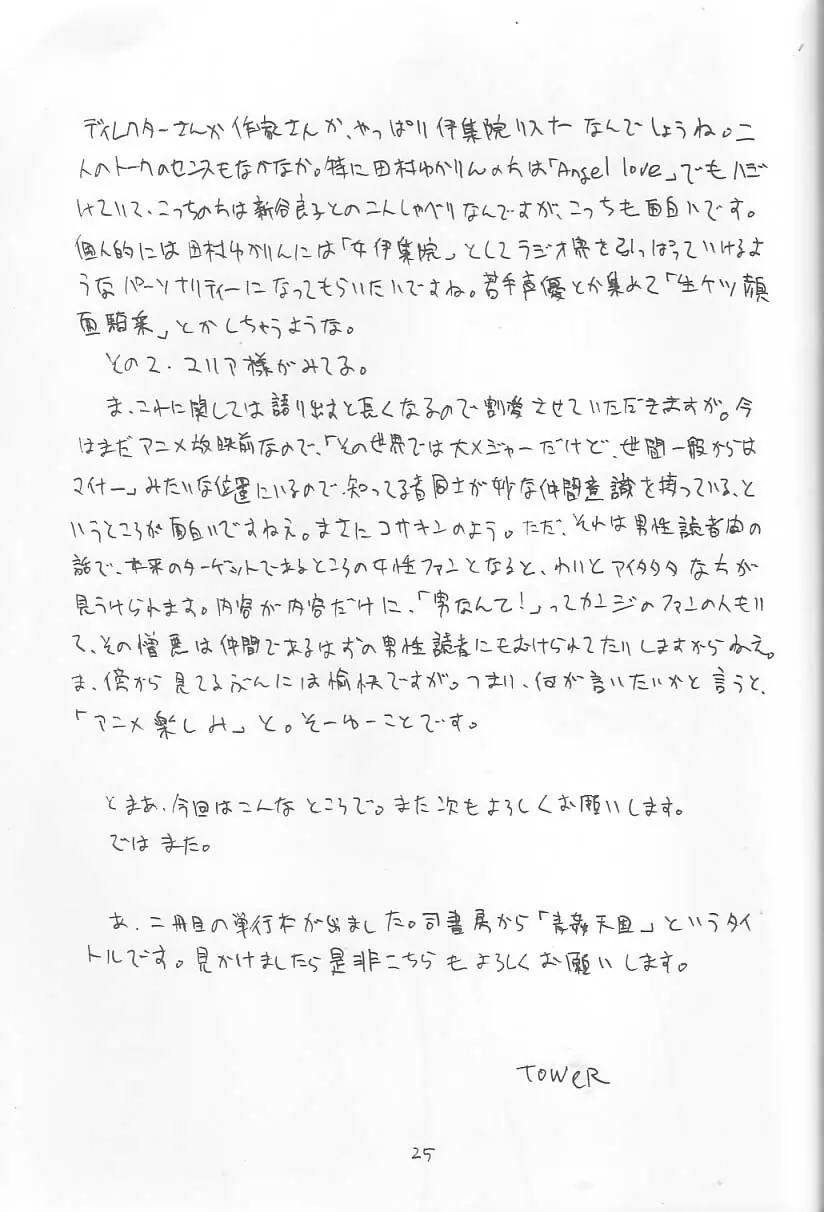 ディレクターさんか作家さんか、やっぱり伊集院リスナーなんでしょうね。二
人のトークのセンスもなかなか。特に田村ゆかりんの方は「Angel love」でもハジ
けていて、こっちの方は新谷良子との二人しゃべりなんですが、こっちも面白いです。
個人的には田村ゆかりんには「女伊集院」としてラジオ界を引っぱっていけるよ
うなパーソナリティーになってもらいたいですね。若手声優とか集めて「生ケツ顔
面騎乗」とかしちゃうような。
その2.マリア様がみてる。
ま、これに関しては語り出すと長くなるので割愛させていただきますが。今
はまだアニメ放映前なので、「その世界では大メジャーだけど、世間一般からは
マイナー」みたいな位置にいるので、知ってる者同士が妙な仲間意識を持っている、と
いうところが面白いですねえ。まさにコサキンのよう。ただ、それは男性読者間の
話で、本来のターゲットであるところの女性ファンとなると、わいとアイタタタな方が
見うけられます。内容が内容だけに、「男なんて!」ってカンジのファンの人もい
て、その憎悪は仲間であるはずの男性読者にもむけられてたりしますからねえ。
ま、傍から見てるぶんには愉快ですが。つまり、何が言いたいかと言うと、
「アニメ楽しみ」と。そーゆーことです。
とまあ、今回はこんなところで。また次もよろしくお願いします。
ではまた。
あ、二冊目の単行本が出ました。司書房から「青姦天国」というタイ
トルです。見かけましたら是非こちらもよろしくお願いします。
TOWeR
25